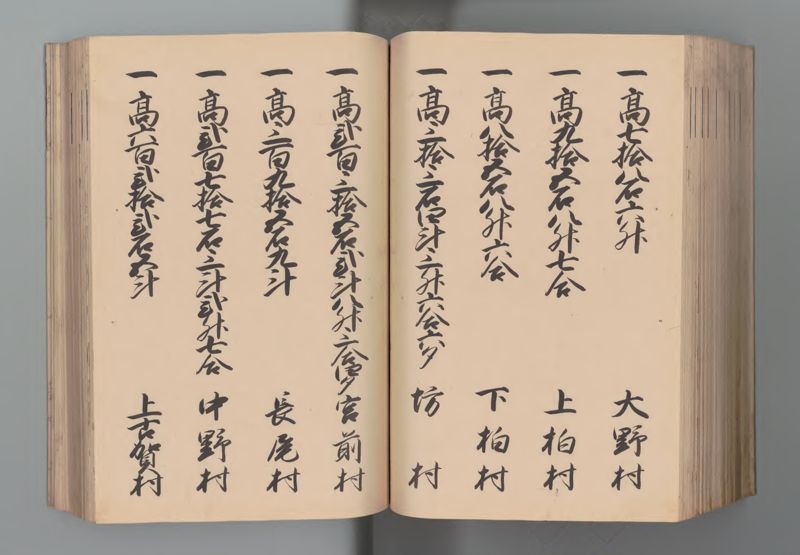 一 高七拾八石六升 大野村
一 高九拾五石八升七合 上柏村
一 高八拾五石八升六合 下柏村
一 高三拾三石四斗三升六合六夕 坊村
一 高弐百三拾五石弐斗八升三合四夕 宮前村
一 高三百九拾五石九斗 長尾村
一 高弐百七拾七石三斗弐升七合 中野村
一 高六百弐拾弐石五斗 上古賀村